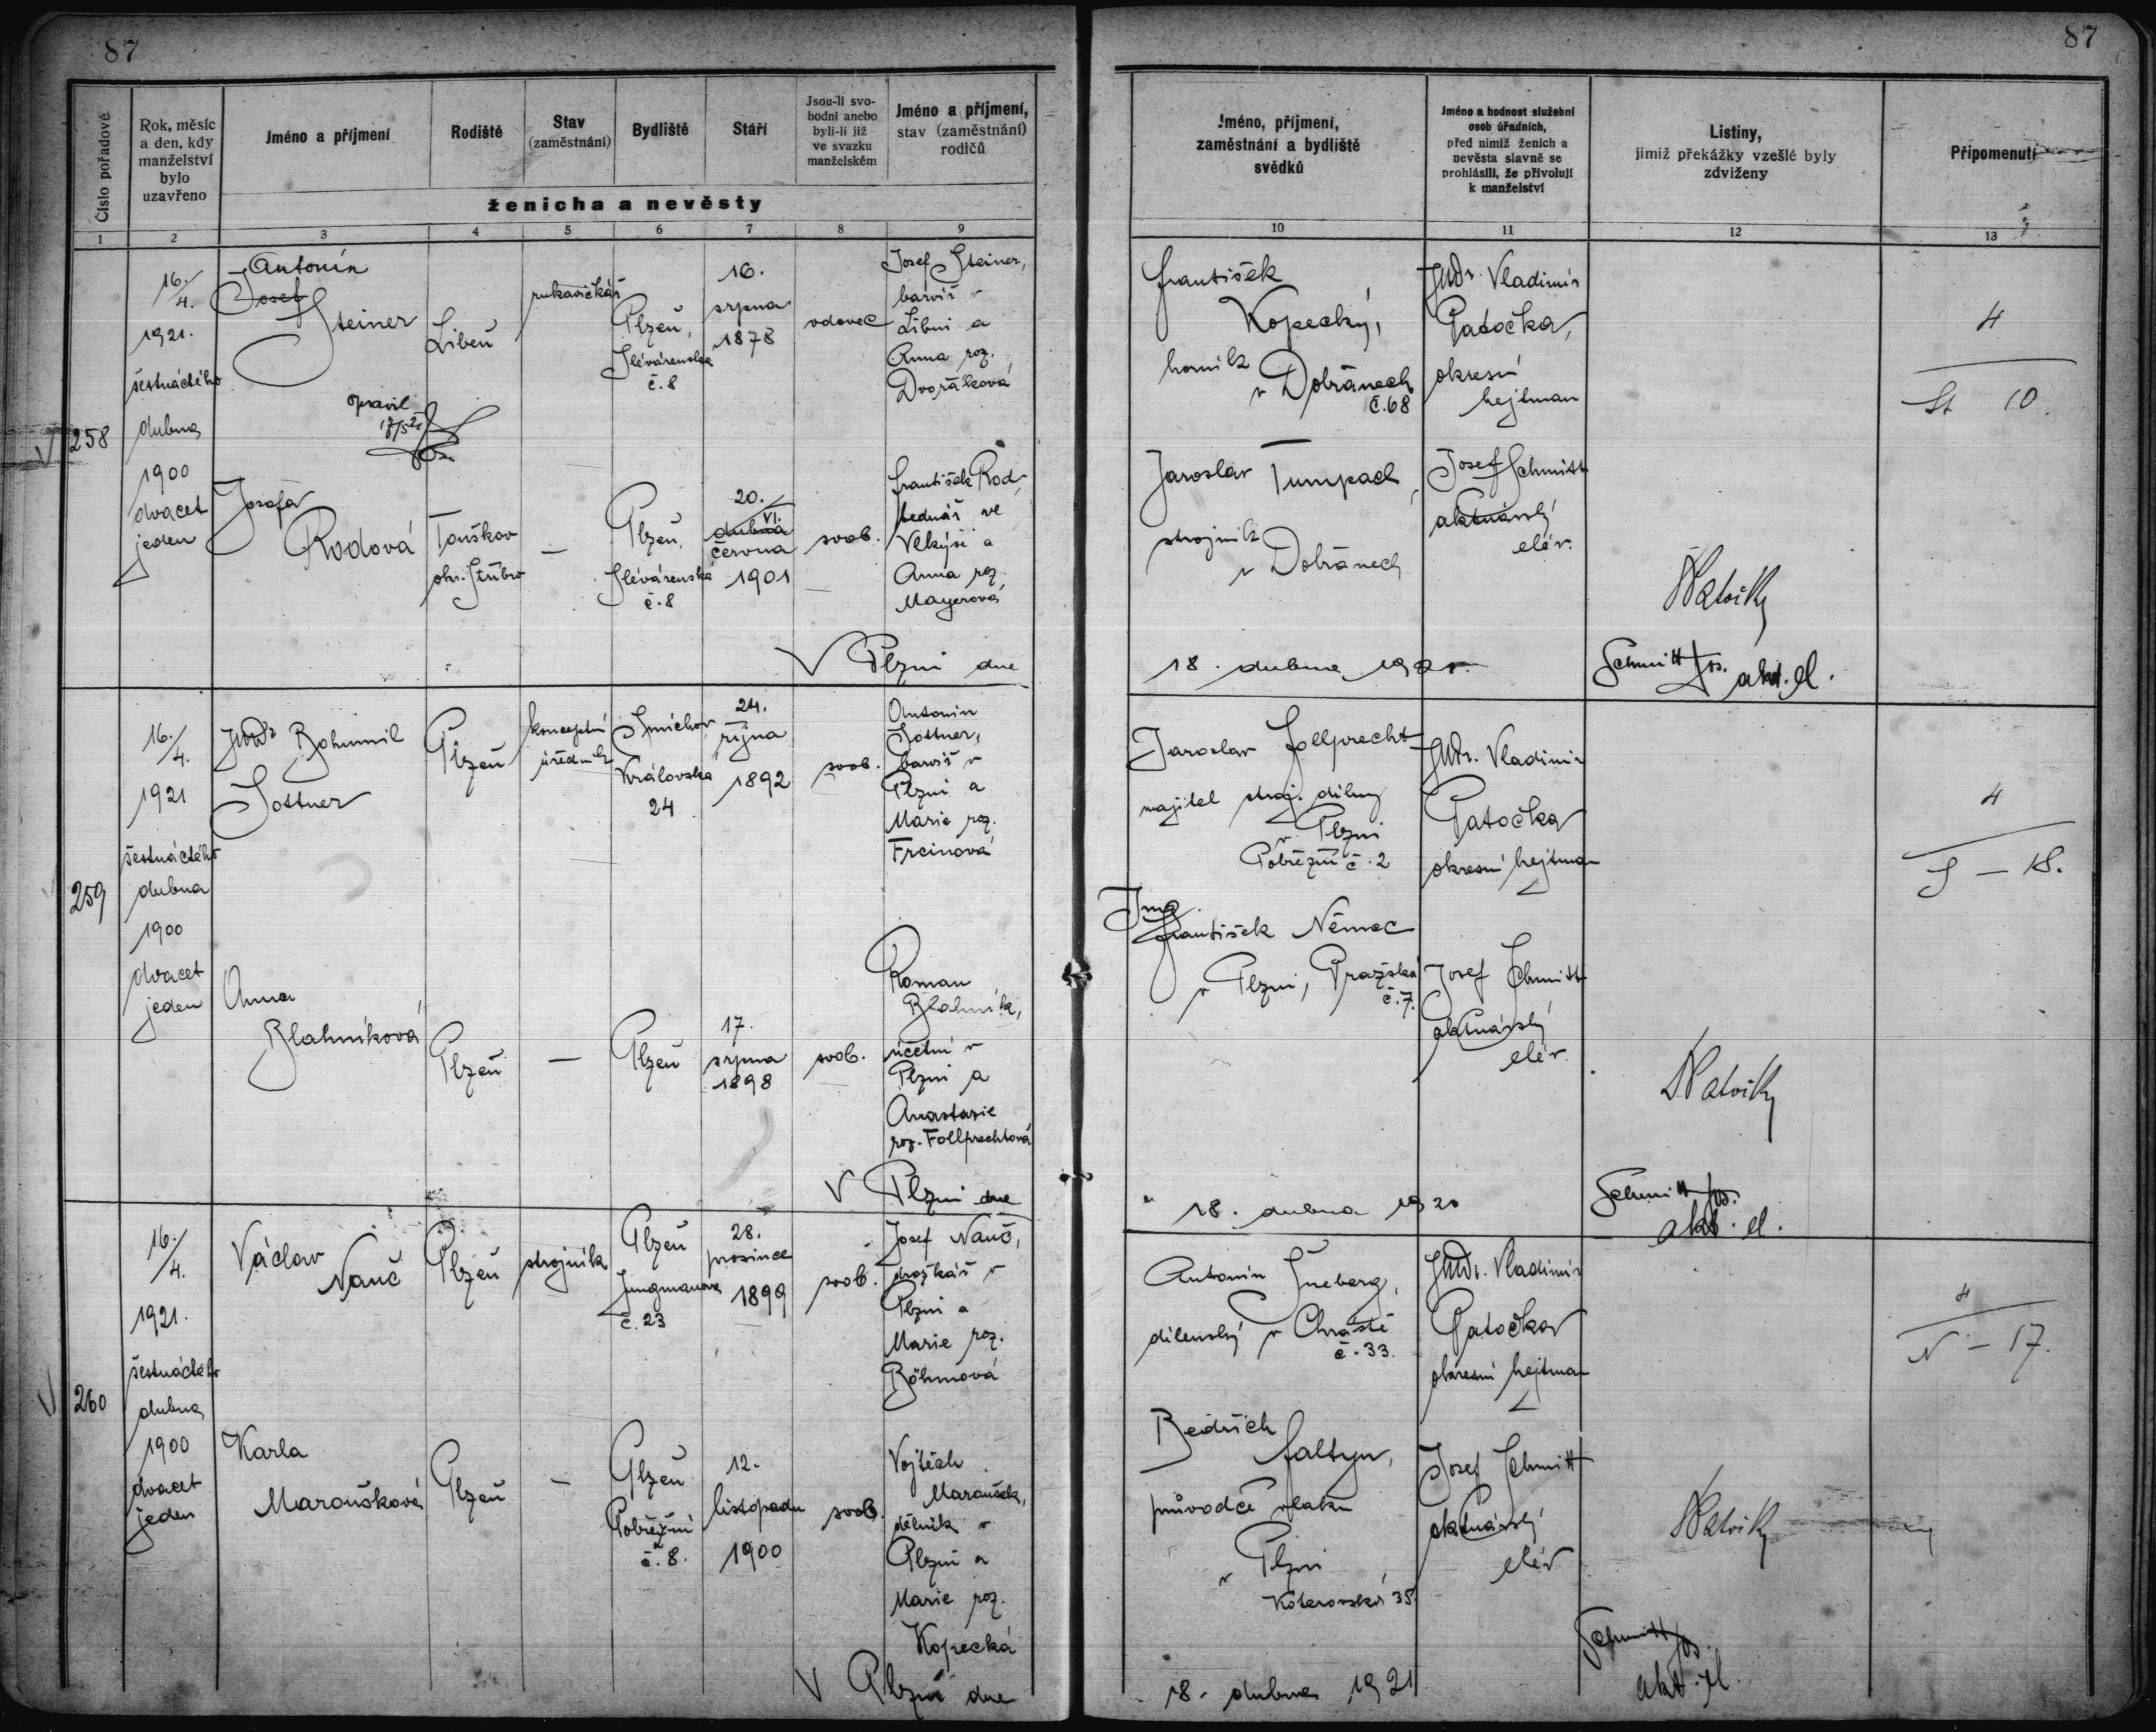 87
87
Číslo pořadové
Rok, měsíc
a den, kdy
manželství
bylo
uzavřeno
Jméno a příjmení
Rodiště
Stav
(zaměstnání)
Bydliště
Stáří
Jsou-li svo-
bodni anebo
byli-li již
ve svazku
manželském
Jméno a příjmení,
stav (zaměstnání)
rodičů
ženicha a nevěsty
Jméno, příjmení,
zaměstnání a bydliště
svědků
Jméno a hodnost služební
osob úřadních,
před nimiž ženich a
nevěsta slavně se
prohlásili, že přivolují
k manželství
Listiny,
jimiž překážky vzešlé byly
zdviženy
Připomenutí
1
2
3
4
5
6
7
8
9
10
11
12
13
258
16./4.
1921.
šestnáctého
dubna
1900
dvacet
jeden
Antonín
Josef
Steiner
opravil
Libeň
rukavičkář
Plzeň,
Slévárenská
č. 8
16.
srpna
1878
vdovec
Josef Steiner,
barvíř v
Libni a
Anna roz.
Dvořáková
František
Kopecký,
horník
v Dobřanech
č. 68
JUDr. Vladimír
Patočka,
okresní
hejtman
4
St 10.
Josefa
Rodová
Touškov
okr. Stříbro
—
Plzeň,
Slévárenská
č. 8
20.
VI.
dubna
června
1901
svob.
František Rod,
bednář ve
Velkýši a
Anna roz.
Mayerová
Jaroslav Tumpach,
strojník
v Dobřanech
Josef Schmitt
aktuárský
elév.
V Plzni dne
18. dubna 1921.
Schmitt Jos. akt. el.
259
16./4.
1921
šestnáctého
dubna
1900
dvacet
jeden
JUDr Bohumil
Sottner
Plzeň
konceptní
úředník
Smíchov
Královská
24
24.
října
1892
svob.
Antonín
Sottner,
barvíř v
Plzni a
Marie roz.
Freinová
Jaroslav Follprecht
majitel stroj. dílny
v Plzni
Pobřežní č. 2
JUDr. Vladimír
Patočka
okresní hejtman
4
S — 18.
Anna
Blahníková
Plzeň
—
Plzeň
17.
srpna
1898
svob.
Roman
Blahník,
účetní v
Plzni a
Anastasie
roz. Follprechtová
Ing.
František Němec
v Plzni, Pražská
č. 7.
Josef Schmitt
aktuárský
elév.
V Plzni dne
18. dubna 1920
Schmitt Jos.
akt. el.
260
16./4.
1921.
šestnáctého
dubna
1900
dvacet
jeden
Václav
Nauč
Plzeň
strojník
Plzeň
Jungmanova
č. 23
28.
prosince
1899
svob.
Josef Nauč,
drožkář v
Plzni a
Marie roz.
Böhmová
Antonín Šneberg,
dílenský v Chrástě
č. 33.
JUDr. Vladimír
Patočka
okresní hejtman
4
N — 17.
Karla
Maroušková
Plzeň
—
Plzeň
Pobřežní
č. 8.
12.
listopadu
1900
svob.
Vojtěch
Maroušek,
dělník v
Plzni a
Marie roz.
Kopecká
Bedřich
Faltyn,
průvodčí vlaku
v Plzni
Koterovská 35.
Josef Schmitt
aktuárský
elév
V Plzni dne
18. dubna 1921
Schmitt Jos.
akt. el.